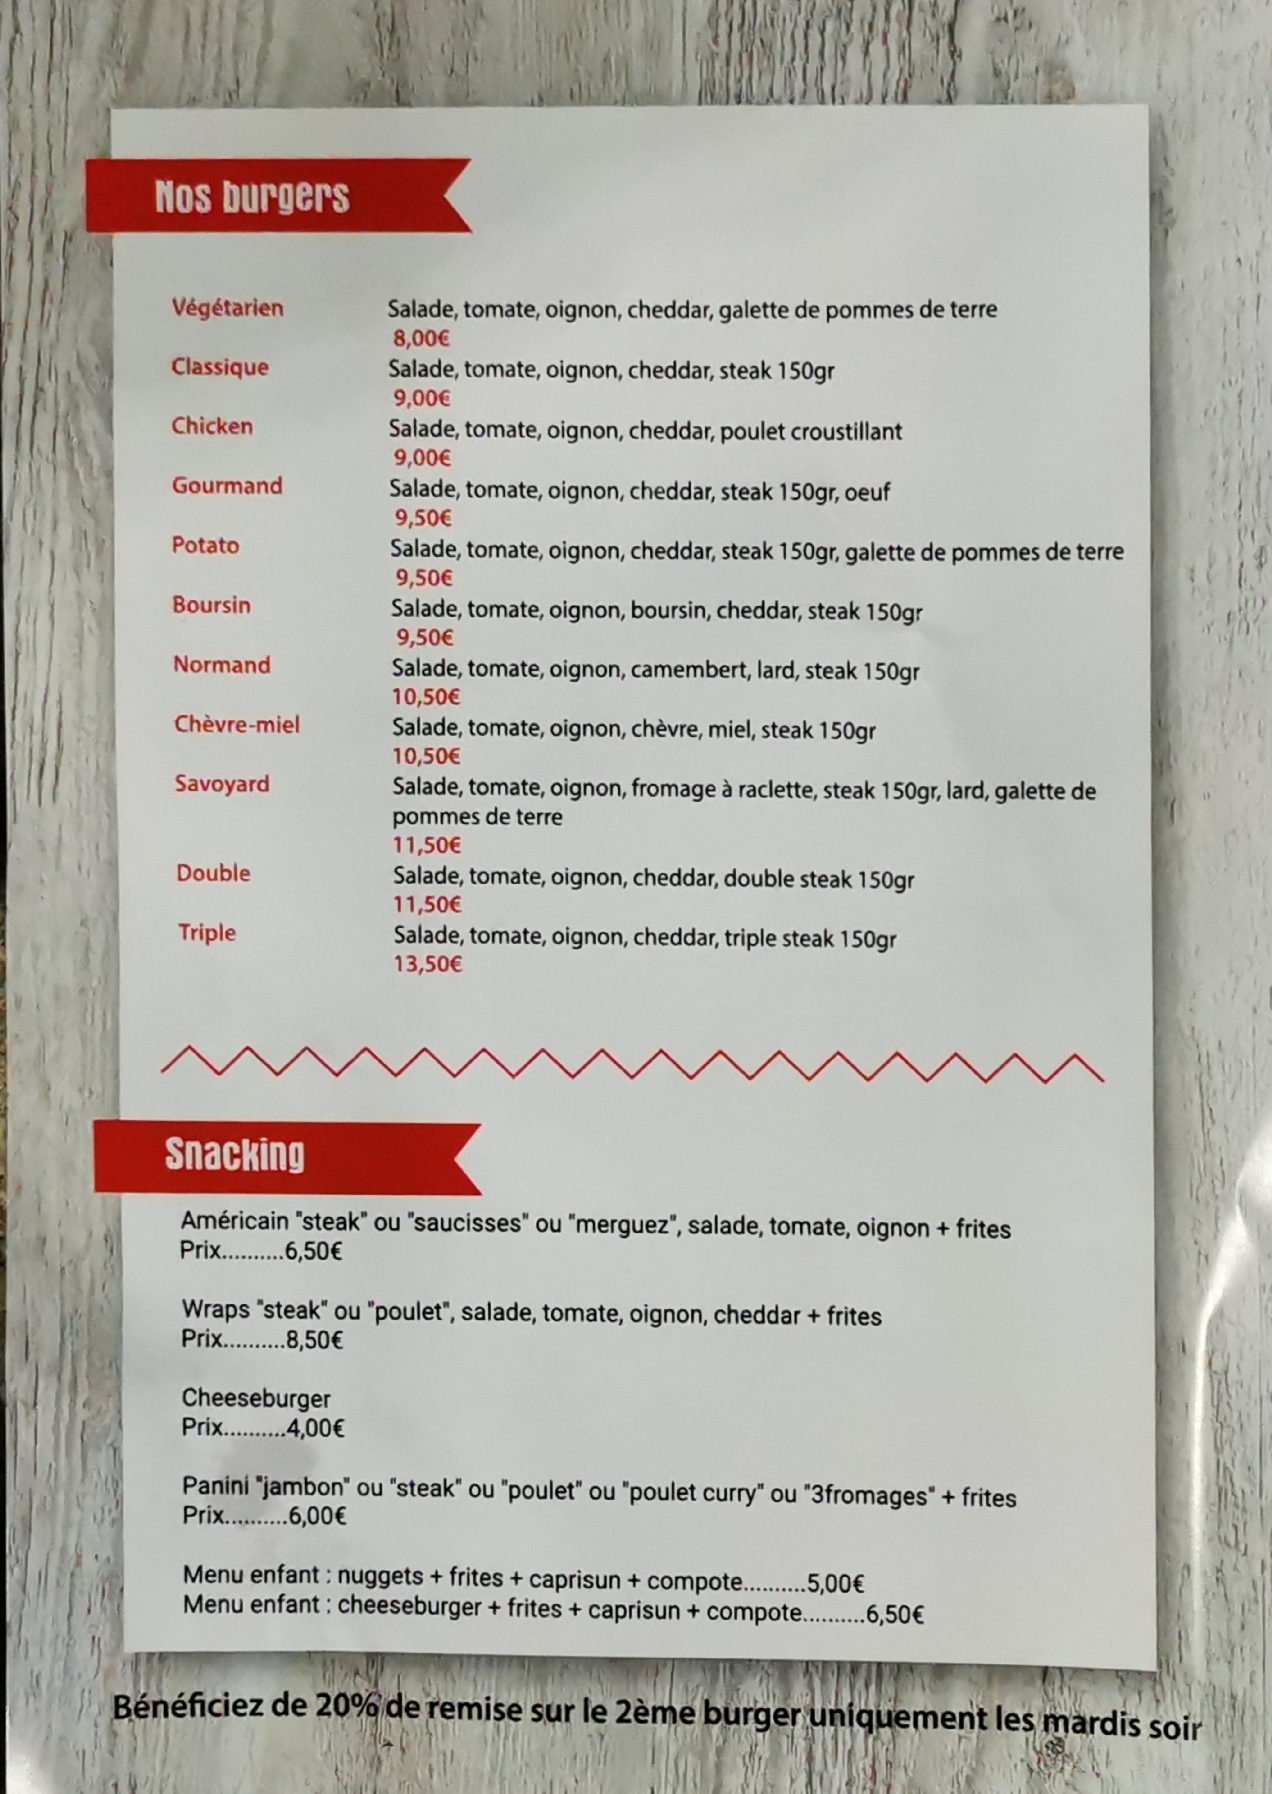 Nos burgers
Végétarien Salade, tomate, oignon, cheddar, galette de pommes de terre
8,00€
Classique Salade, tomate, oignon, cheddar, steak 150gr
9,00€
Chicken Salade, tomate, oignon, cheddar, poulet croustillant
9,00€
Gourmand Salade, tomate, oignon, cheddar, steak 150gr, oeuf
9,50€
Potato Salade, tomate, oignon, cheddar, steak 150gr, galette de pommes de terre
9,50€
Boursin Salade, tomate, oignon, boursin, cheddar, steak 150gr
9,50€
Normand Salade, tomate, oignon, camembert, lard, steak 150gr
10,50€
Chèvre-miel Salade, tomate, oignon, chèvre, miel, steak 150gr
10,50€
Savoyard Salade, tomate, oignon, fromage à raclette, steak 150gr, lard, galette de
pommes de terre
11,50€
Double Salade, tomate, oignon, cheddar, double steak 150gr
11,50€
Triple Salade, tomate, oignon, cheddar, triple steak 150gr
13,50€
Snacking
Américain "steak" ou "saucisses" ou "merguez", salade, tomate, oignon + frites
Prix..........6,50€
Wraps "steak" ou "poulet", salade, tomate, oignon, cheddar + frites
Prix..........8,50€
Cheeseburger
Prix..........4,00€
Panini "jambon" ou "steak" ou "poulet" ou "poulet curry" ou "3fromages" + frites
Prix..........6,00€
Menu enfant : nuggets + frites + caprisun + compote..........5,00€
Menu enfant : cheeseburger + frites + caprisun + compote..........6,50€
Bénéficiez de 20% de remise sur le 2ème burger uniquement les mardis soir